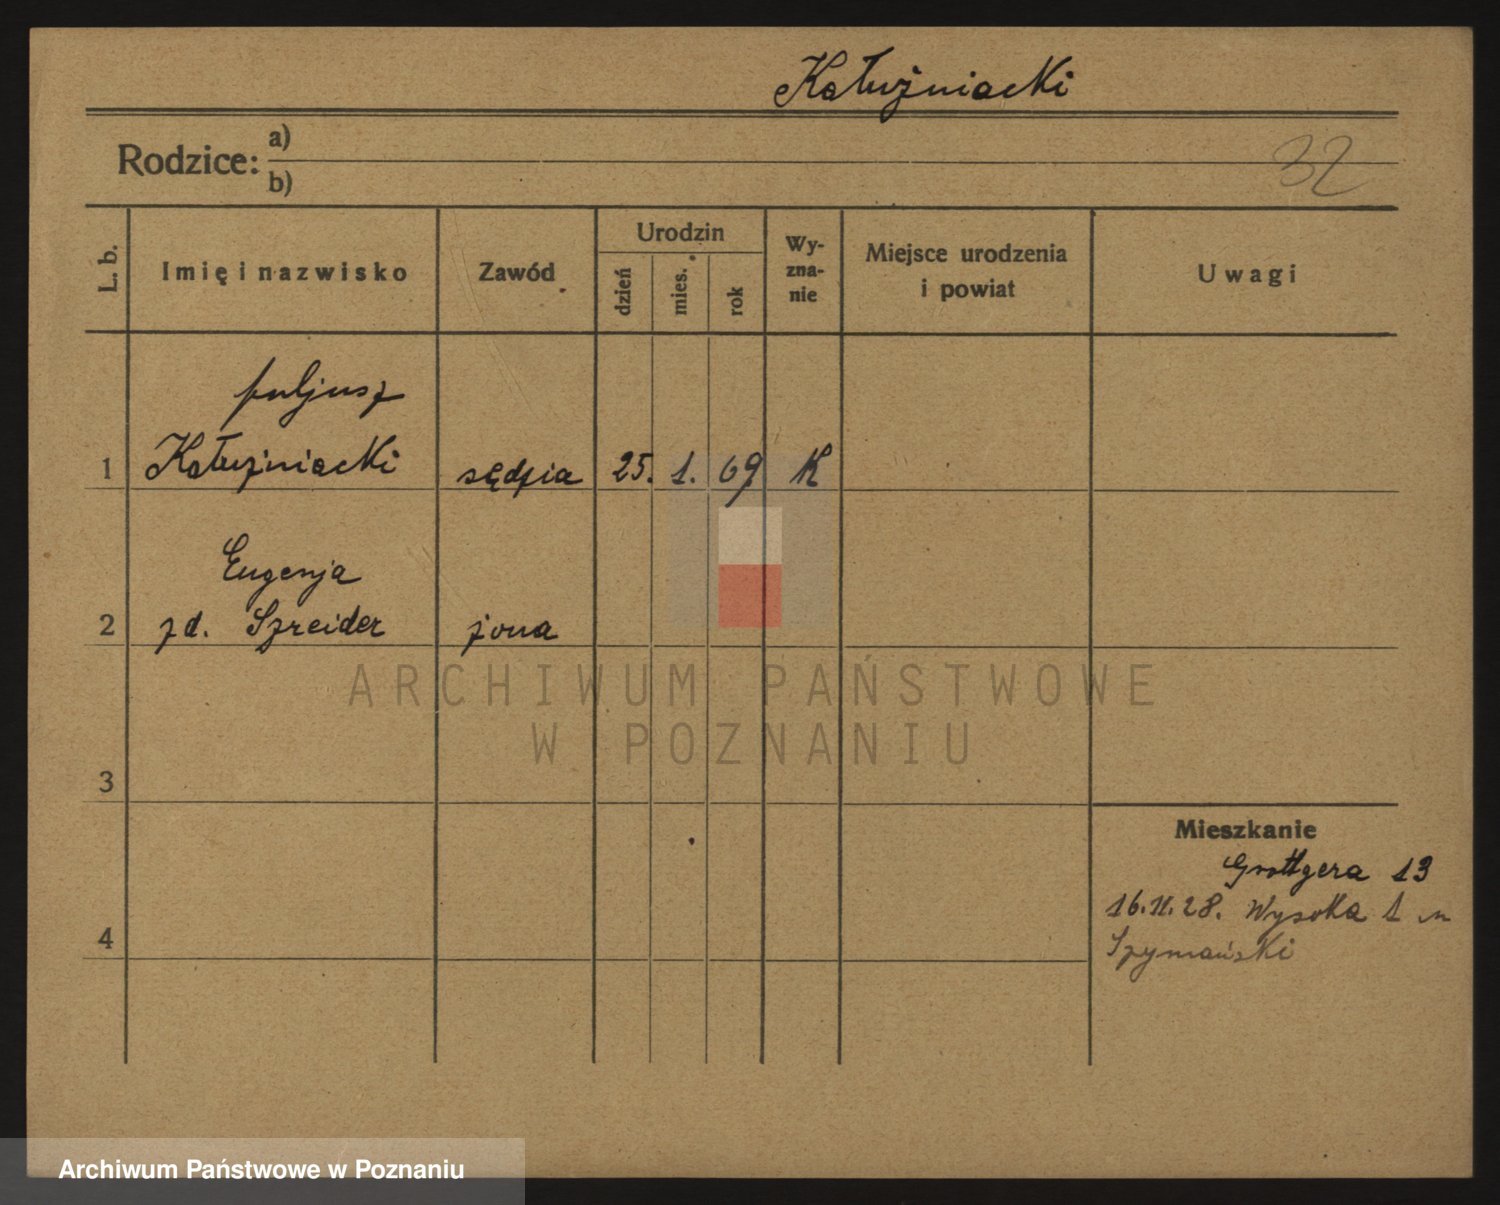 Kałużniacki
Rodzice: a)
b)
32
L. b.
Imię i nazwisko
Zawód
Urodzin
dzień
mies.
rok
Wy-
zna-
nie
Miejsce urodzenia
i powiat
Uwagi
Juljusz
1 Kałużniacki sędzia 25. 1. 69 K
Eugenja
2 zd. Szreider żona
ARCHIWUM PAŃSTWOWE
W POZNANIU
3
Mieszkanie
Grottgera 13
16.11.28. Wysoka 1
4
Szymański
Archiwum Państwowe w Poznaniu